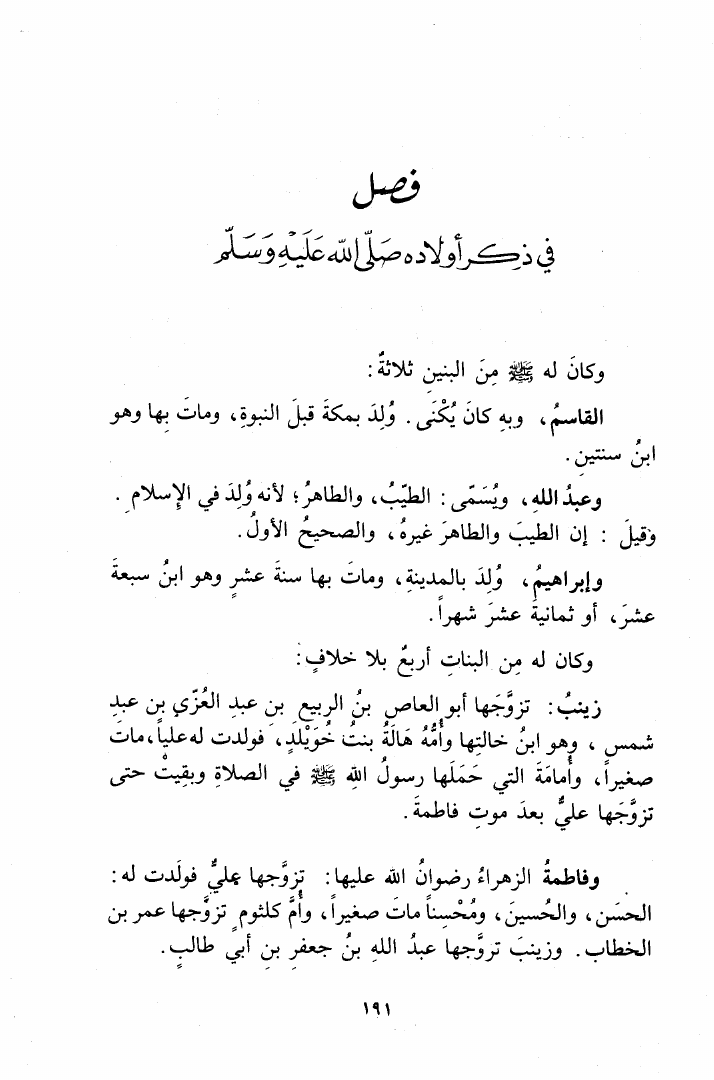 فصل
في ذكر أولاده صَلّى الله عَلَيْهِ وَسَلّم
وكانَ له ﷺ مِنَ البنينِ ثلاثةٌ:
القاسمُ، وبهِ كانَ يُكْنَى. وُلِدَ بمكةَ قبلَ النبوةِ، وماتَ بها وهو
ابنُ سنتينِ.
وعبدُ اللهِ، ويُسَمّى: الطيّبُ، والطاهرُ؛ لأنه وُلِدَ في الإِسلامِ.
وقيلَ: إن الطيبَ والطاهرَ غيرهُ، والصحيحُ الأولُ.
وإبراهيمُ، وُلِدَ بالمدينةِ، وماتَ بها سنةَ عشرٍ وهو ابنُ سبعةَ
عشرَ، أو ثمانيةَ عشرَ شهراً.
وكان له مِن البناتِ أربعٌ بلا خلافٍ:
زينبُ: تزوَّجَها أبو العاصِ بنُ الربيعِ بنِ عبدِ العُزّي بنِ عبدِ
شمسٍ، وهو ابنُ خالتِها وأُمُّهُ هَالَةُ بنتُ خُوَيْلَدٍ، فولدت له علياً، ماتَ
صغيراً، وأُمامَةَ التي حَمَلَها رسولُ اللهِ ﷺ في الصلاةِ وبقيتْ حتى
تزوَّجَها عليٌّ بعدَ موتِ فاطمةَ.
وفاطمةُ الزهراءُ رضوانُ الله عليها: تزوَّجها عليٌّ فولَدت له:
الحسَن، والحُسينَ، ومُحْسِناً ماتَ صغيراً، وأُمَّ كلثومٍ تزوَّجها عمر بن
الخطاب. وزينبَ تروَّجها عبدُ اللهِ بنُ جعفرِ بنِ أبي طالبٍ.
١٩١